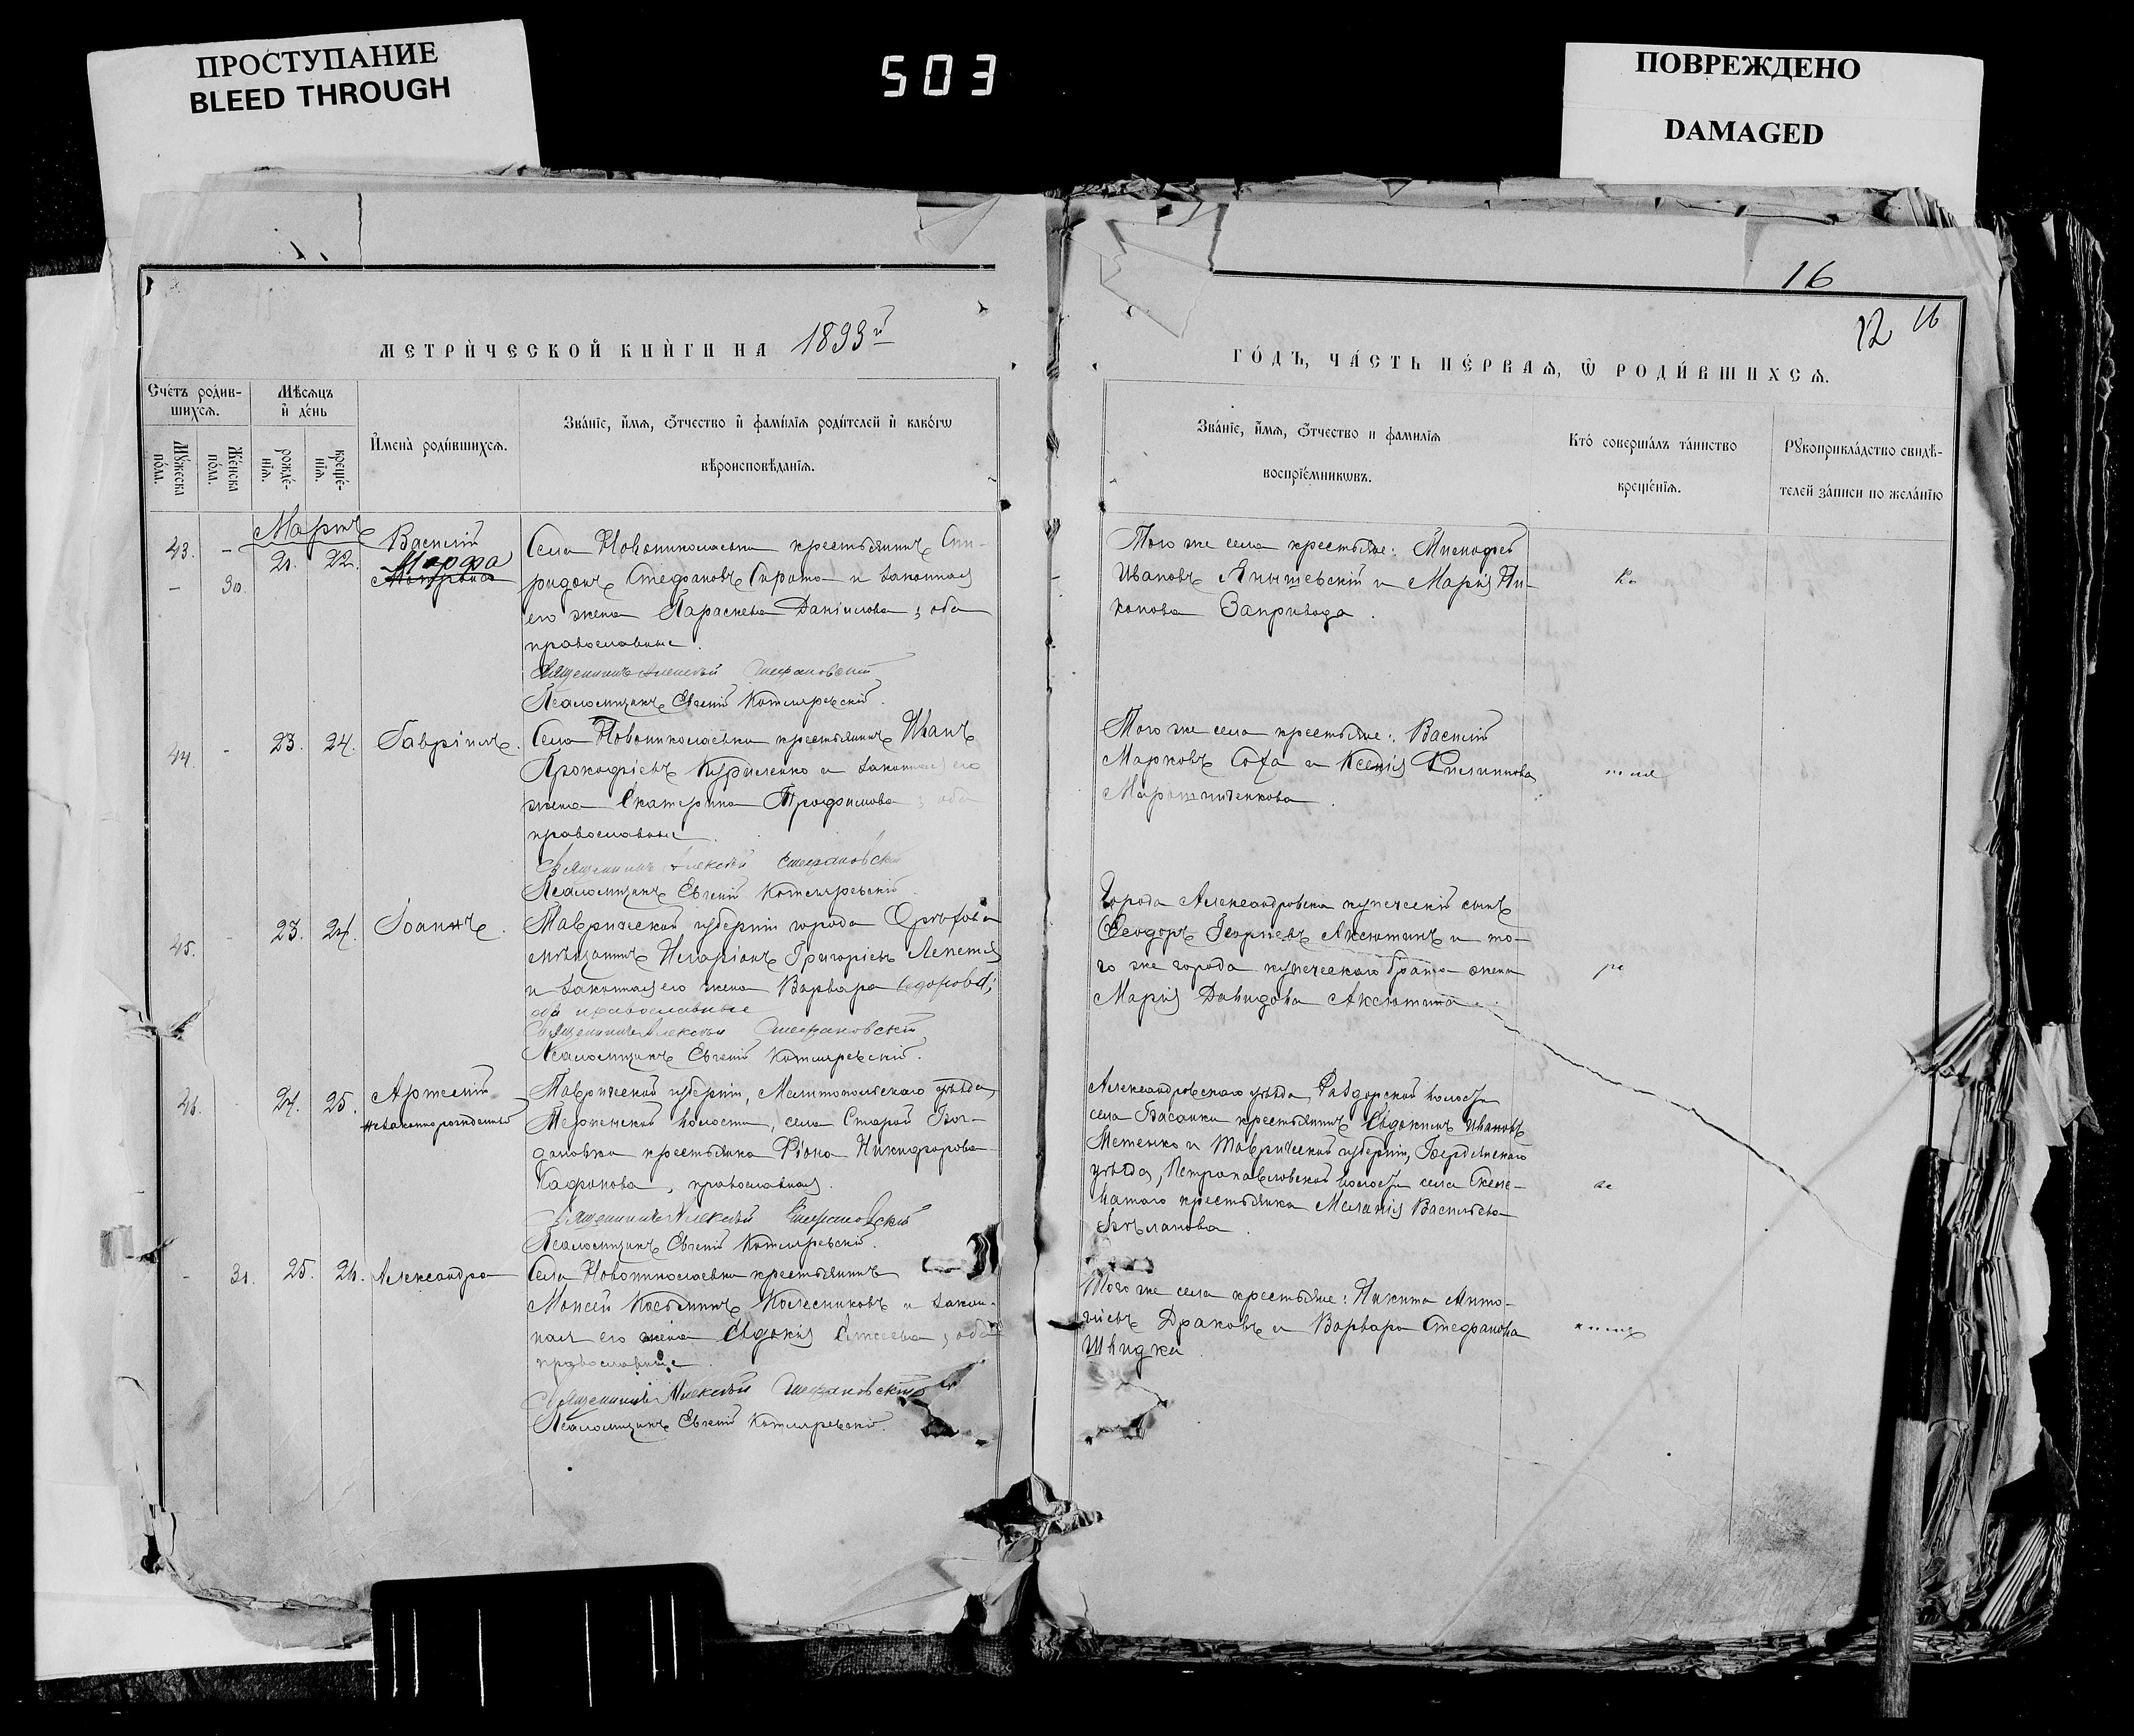 ПРОСТУПАНИЕ
BLEED THROUGH
503
ПОВРЕЖДЕНО
DAMAGED
16
12 16
МЕТРИЧЕСКОЙ КНИГИ НА 1893й
ГОДЪ, ЧАСТЬ ПЕРВАЯ, Ѡ РОДИВШИХСЯ.
Счетъ родив-
шихся.
Мужеска
пола.
Женска
пола.
Мѣсяцъ
и день
рожде-
нія.
креще-
нія.
Имена родившихся.
Званіе, имя, отчество и фамилія родителей и какогѡ
вѣроисповѣданія.
Званіе, имя, отчество и фамилія
воспріемникѡвъ.
Кто совершалъ таинство
крещенія.
Рукоприкладство свидѣ-
телей записи по желанію
Мартъ
43. - 21. 22. Василій
- 30. Марфа
Села Новониколаевки крестьянинъ Спи-
ридонъ Стефановъ Сирота и законная
его жена Параскева Даніилова; оба
православные.
Священникъ Алексѣй Стефановскій
Псаломщикъ Евгеній Котляревскій.
Того же села крестьяне:
Ивановъ Янышевскій и Марія Ни-
конова Запривода.
44. - 23. 24. Гавріилъ.
Села Новониколаевки крестьянинъ Иванъ
Прокофіевъ Куриленко и законная его
жена Екатерина Трофимова; оба
православные.
Священникъ Алексѣй Стефановскій
Псаломщикъ Евгеній Котляревскій.
Того же села крестьяне: Василій
Марковъ Соха и Ксенія Филиппова
45. - 23. 24. Іоаннъ.
Таврической губерніи города Орѣхова
мѣщанинъ Иларіонъ Григоріевъ Лепетя
и законная его жена Варвара Ѳедорова;
оба православные
Священникъ Алексѣй Стефановскій
Псаломщикъ Евгеній Котляревскій.
Города Александровска купеческій сынъ
Ѳеодоръ Георгіевъ Аксютинъ и то-
го же города купеческаго брата жена
Марія Давидова Аксютина.
46. - 24. 25. Артемій
незаконнорожденный
Таврической губерніи, Мелитопольскаго уѣзда,
Терпенской волости, села Старой Бог-
дановки крестьянка Никифорова
православная.
Священникъ Алексѣй Стефановскій
Псаломщикъ Евгеній Котляревскій.
Александровскаго уѣзда, волости
села Басанки крестьянинъ Евдокимъ Ивановъ
и Таврической губерніи, Бердянскаго
уѣзда, Петропавловской волости села
крестьянка Меланія Васильева
- 31. 25. 26. Александра
Села Новониколаевки крестьянинъ
Моисей Косьминъ Колесниковъ и закон-
ная его жена Евдокія оба
православные.
Священникъ Алексѣй Стефановскій
Псаломщикъ Евгеній Котляревскій.
Того же села крестьяне: Никита Анто-
ніевъ Драковъ и Варвара Стефанова
Швидка.